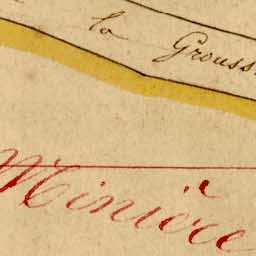 la Grouss
Minière